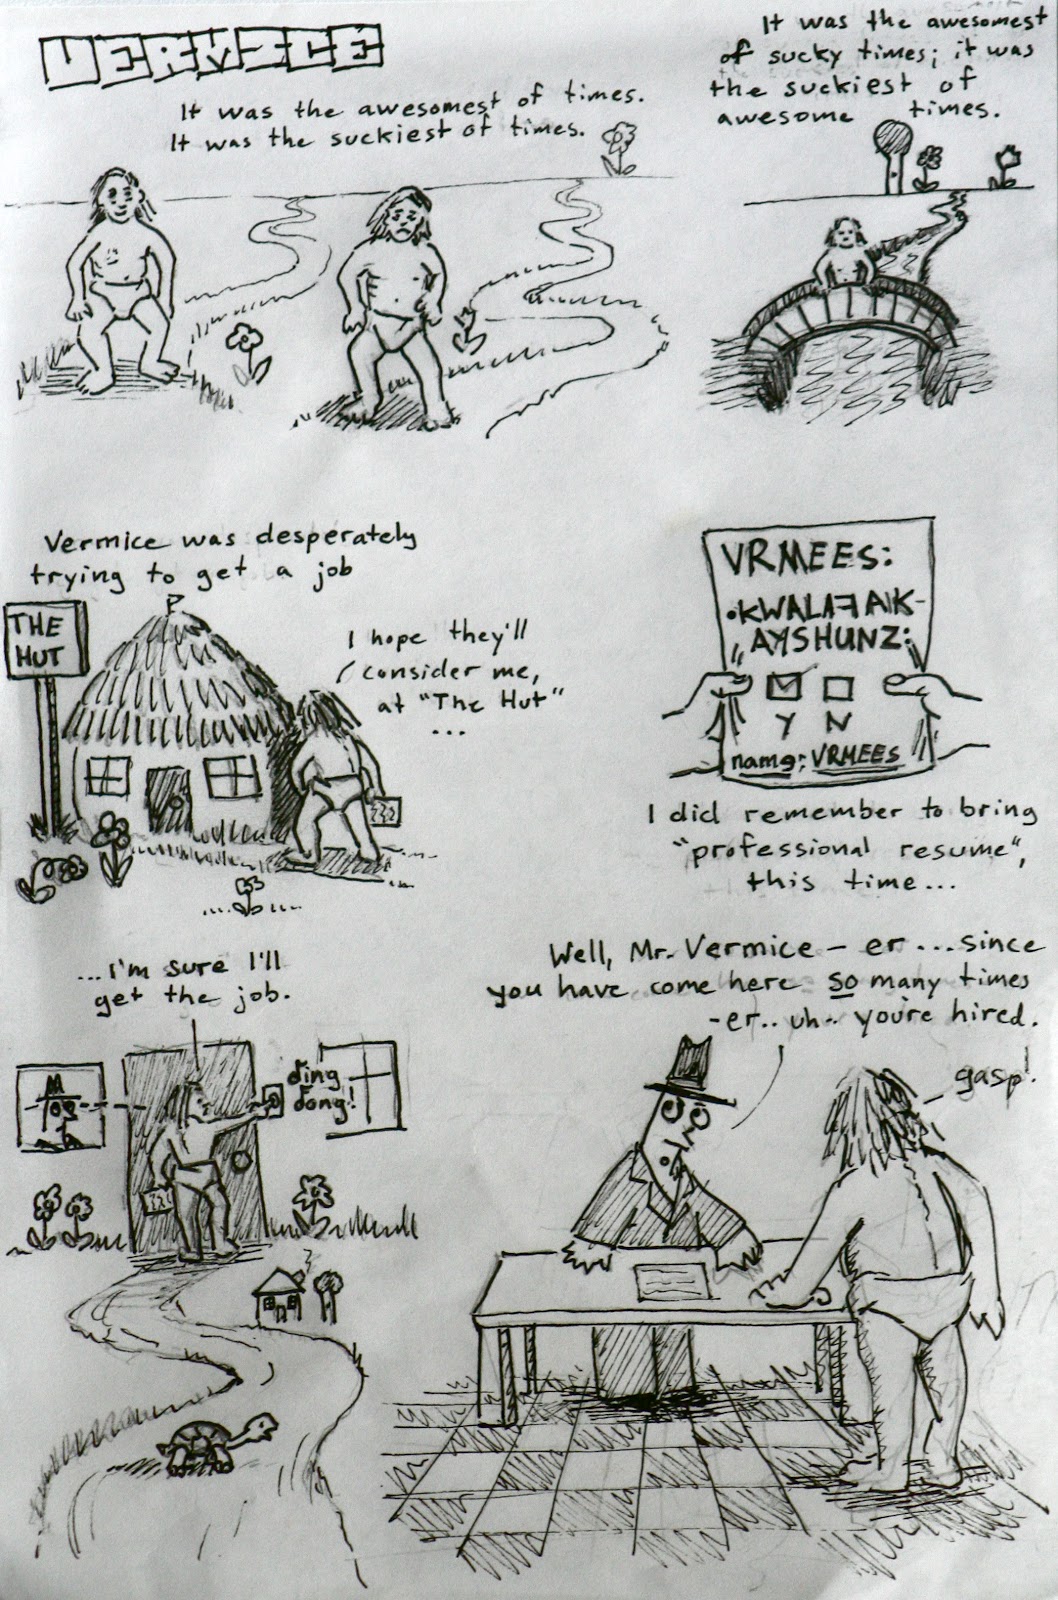 VERMICE
It was the awesomest of times.
It was the suckiest of times.
It was the awesomest
of sucky times; it was
the suckiest of
awesome times.
Vermice was desperately
trying to get a job
THE
HUT
I hope they'll
consider me,
at "The Hut"
...
VRMEES:
•KWALAFAIK-
AYSHUNZ:
Y N
name: VRMEES
I did remember to bring
"professional resume",
this time...
...I'm sure I'll
get the job.
ding
dong!
Well, Mr. Vermice — er ... since
you have come here so many times
-er.. uh.. you're hired.
gasp!